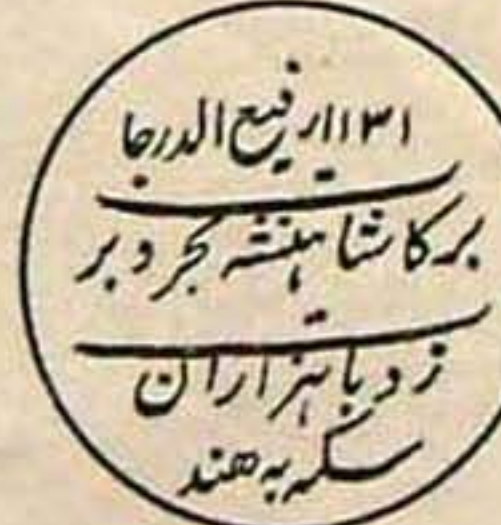 ۱۱۳۱ رفیع الدرجات
برکات شاهنشه بحر و بر
زد با هزاران
سکه به هند